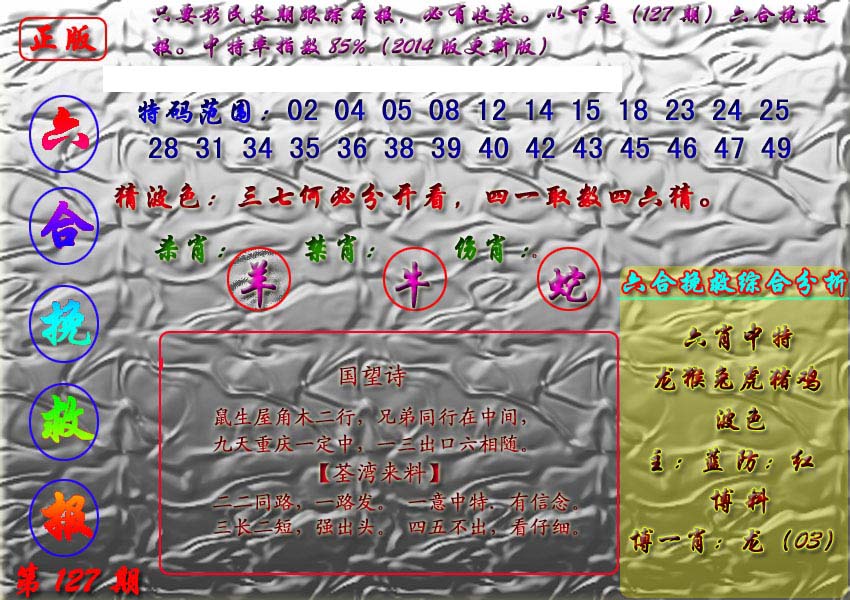 正版
只要彩民长期跟踪本报，必有收获。以下是（127期）六合挽救
报。中特率指数85%（2014版更新版）
六合挽救报
第127期
特码范围：02 04 05 08 12 14 15 18 23 24 25
28 31 34 35 36 38 39 40 42 43 45 46 47 49
猜波色：三七何必分开看，四一取数四六猜。
杀肖：羊 禁肖：牛 伤肖：蛇
国望诗
鼠生屋角木二行，兄弟同行在中间，
九天重庆一定中，一三出口六相随。
【荃湾来料】
二二同路，一路发。 一意中特．有信念。
三长二短，强出头。 四五不出，看仔细。
六合挽救综合分析
六肖中特
龙猴兔虎猪鸡
波色
主：蓝防：红
博料
博一肖：龙（03）